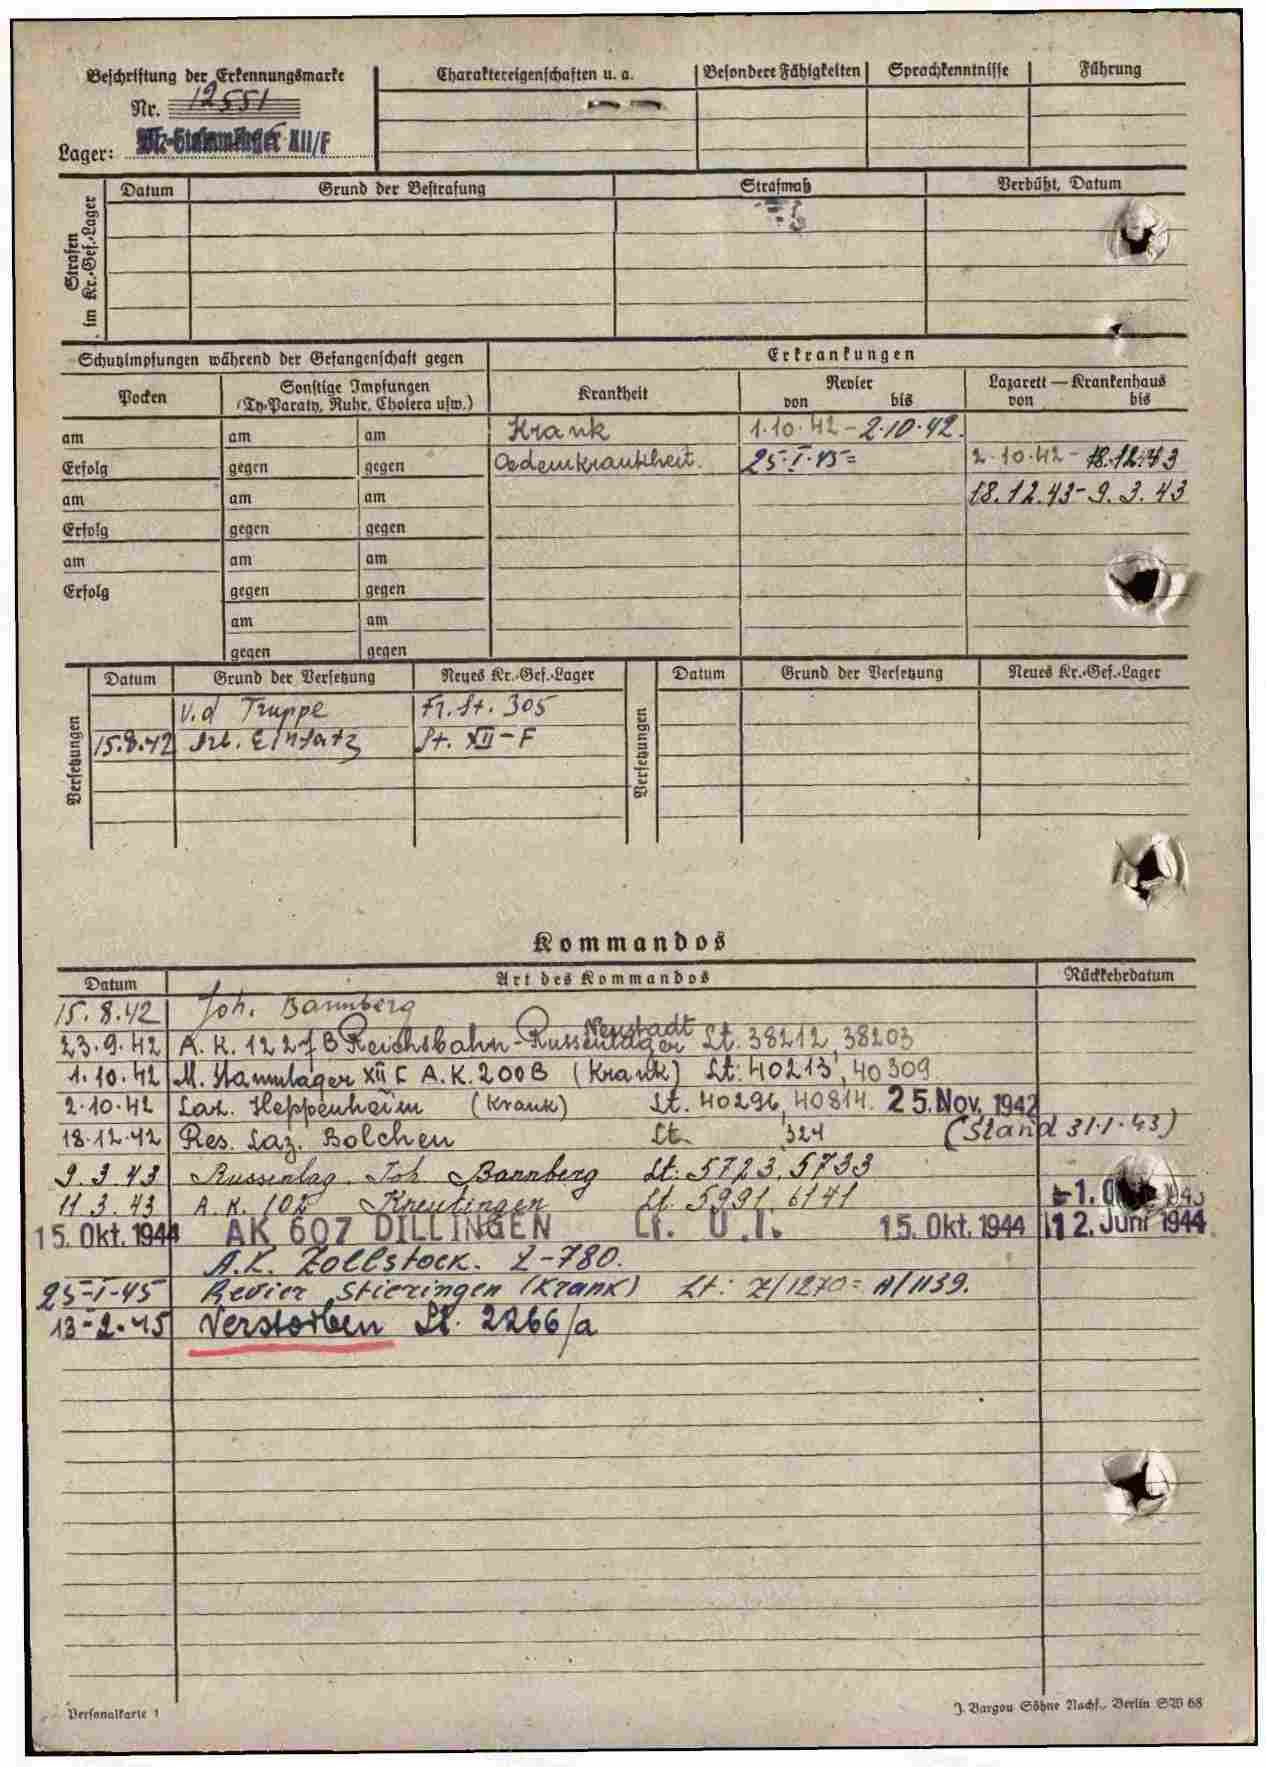 Beschriftung der Erkennungsmarke
Nr. 12551
Lager: M.-Stammlager XII/F
Charaktereigenschaften u. a.
Besondere Fähigkeiten
Sprachkenntnisse
Führung
Strafen im Kr.-Gef.-Lager
Datum Grund der Bestrafung Strafmaß Verbüßt, Datum
Schutzimpfungen während der Gefangenschaft gegen
Pocken
Sonstige Impfungen
(Ty-Paraty, Ruhr, Cholera usw.)
Erkrankungen
Krankheit
Revier
von bis
Lazarett — Krankenhaus
von bis
am am am Krank 1.10.42 - 2.10.42.
Erfolg gegen gegen Oedemkrankheit. 25-I-45= 2.10.42 - 18.12.43
am am am 18.12.43 - 9.3.43
Erfolg gegen gegen
am am am
Erfolg gegen gegen
am am
gegen gegen
Versetzungen
Datum Grund der Versetzung Neues Kr.-Gef.-Lager
v.d Truppe Fr. St. 305
15.8.42 Arb. Einsatz St. XII-F
Versetzungen
Datum Grund der Versetzung Neues Kr.-Gef.-Lager
Kommandos
Datum Art des Kommandos Rückkehrdatum
15.8.42 Joh. Bannberg
Neustadt
23.9.42 A.K. 122f B Reichsbahn-Russenlager Lt. 38212, 38203
1.10.42 M. Stammlager XII F A.K. 200B (Krank) Lt: 40213, 40309
2.10.42 Laz. Heppenheim (Krank) Lt. 40296, 40814. 25. Nov. 1942
18.12.42 Res. Laz. Bolchen Lt. 324 (Stand 31.1.43)
9.3.43 Russenlag. Joh. Bannberg Lt: 5723, 5733
11.3.43 A.K. 102 Kreutingen Lt. 5991, 6141 1943
15. Okt. 1944 AK 607 DILLINGEN Lt. U.I. 15. Okt. 1944 12. Juni 1944
A.K. Zollstock. Z-780.
25-I-45 Revier Stieringen (Krank) Lt: Z/1270= A/1139.
13-2-45 Verstorben Lt. 2266/a
Personalkarte 1
J. Bargou Söhne Nachf., Berlin SW 68